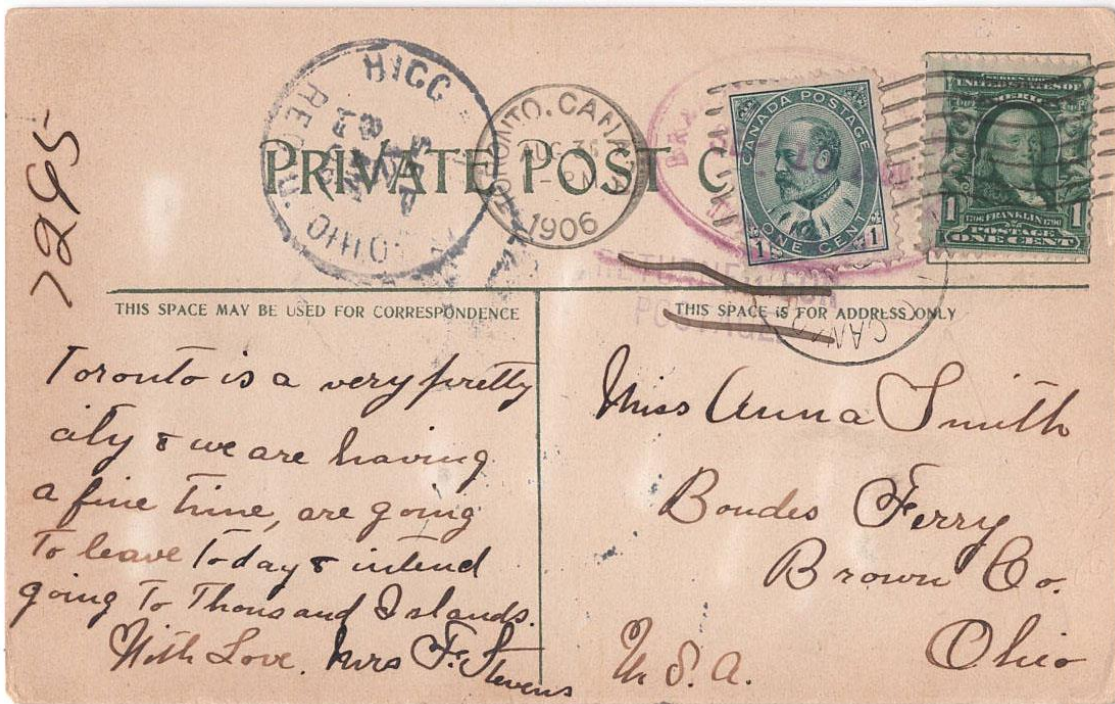 7295
HIGG
REC'D.
OHIO
TORONTO, CANADA
AUG 3
PM
1906
PRIVATE POST C
CANADA POSTAGE
1 ONE CENT 1
SERIES 1902
UNITED STATES OF
AMERI
1706 FRANKLIN 1790
1 POSTAGE 1
ONE CENT
RETURNED FOR
POSTAGE
CANA
THIS SPACE MAY BE USED FOR CORRESPONDENCE
THIS SPACE IS FOR ADDRESS ONLY
Toronto is a very pretty
city & we are having
a fine time, are going
To leave Today & intend
going To Thousand Islands.
With Love, Mrs F. Stevens
Miss Anna Smith
Boudes Ferry
Brown Co.
Ohio
U.S.A.